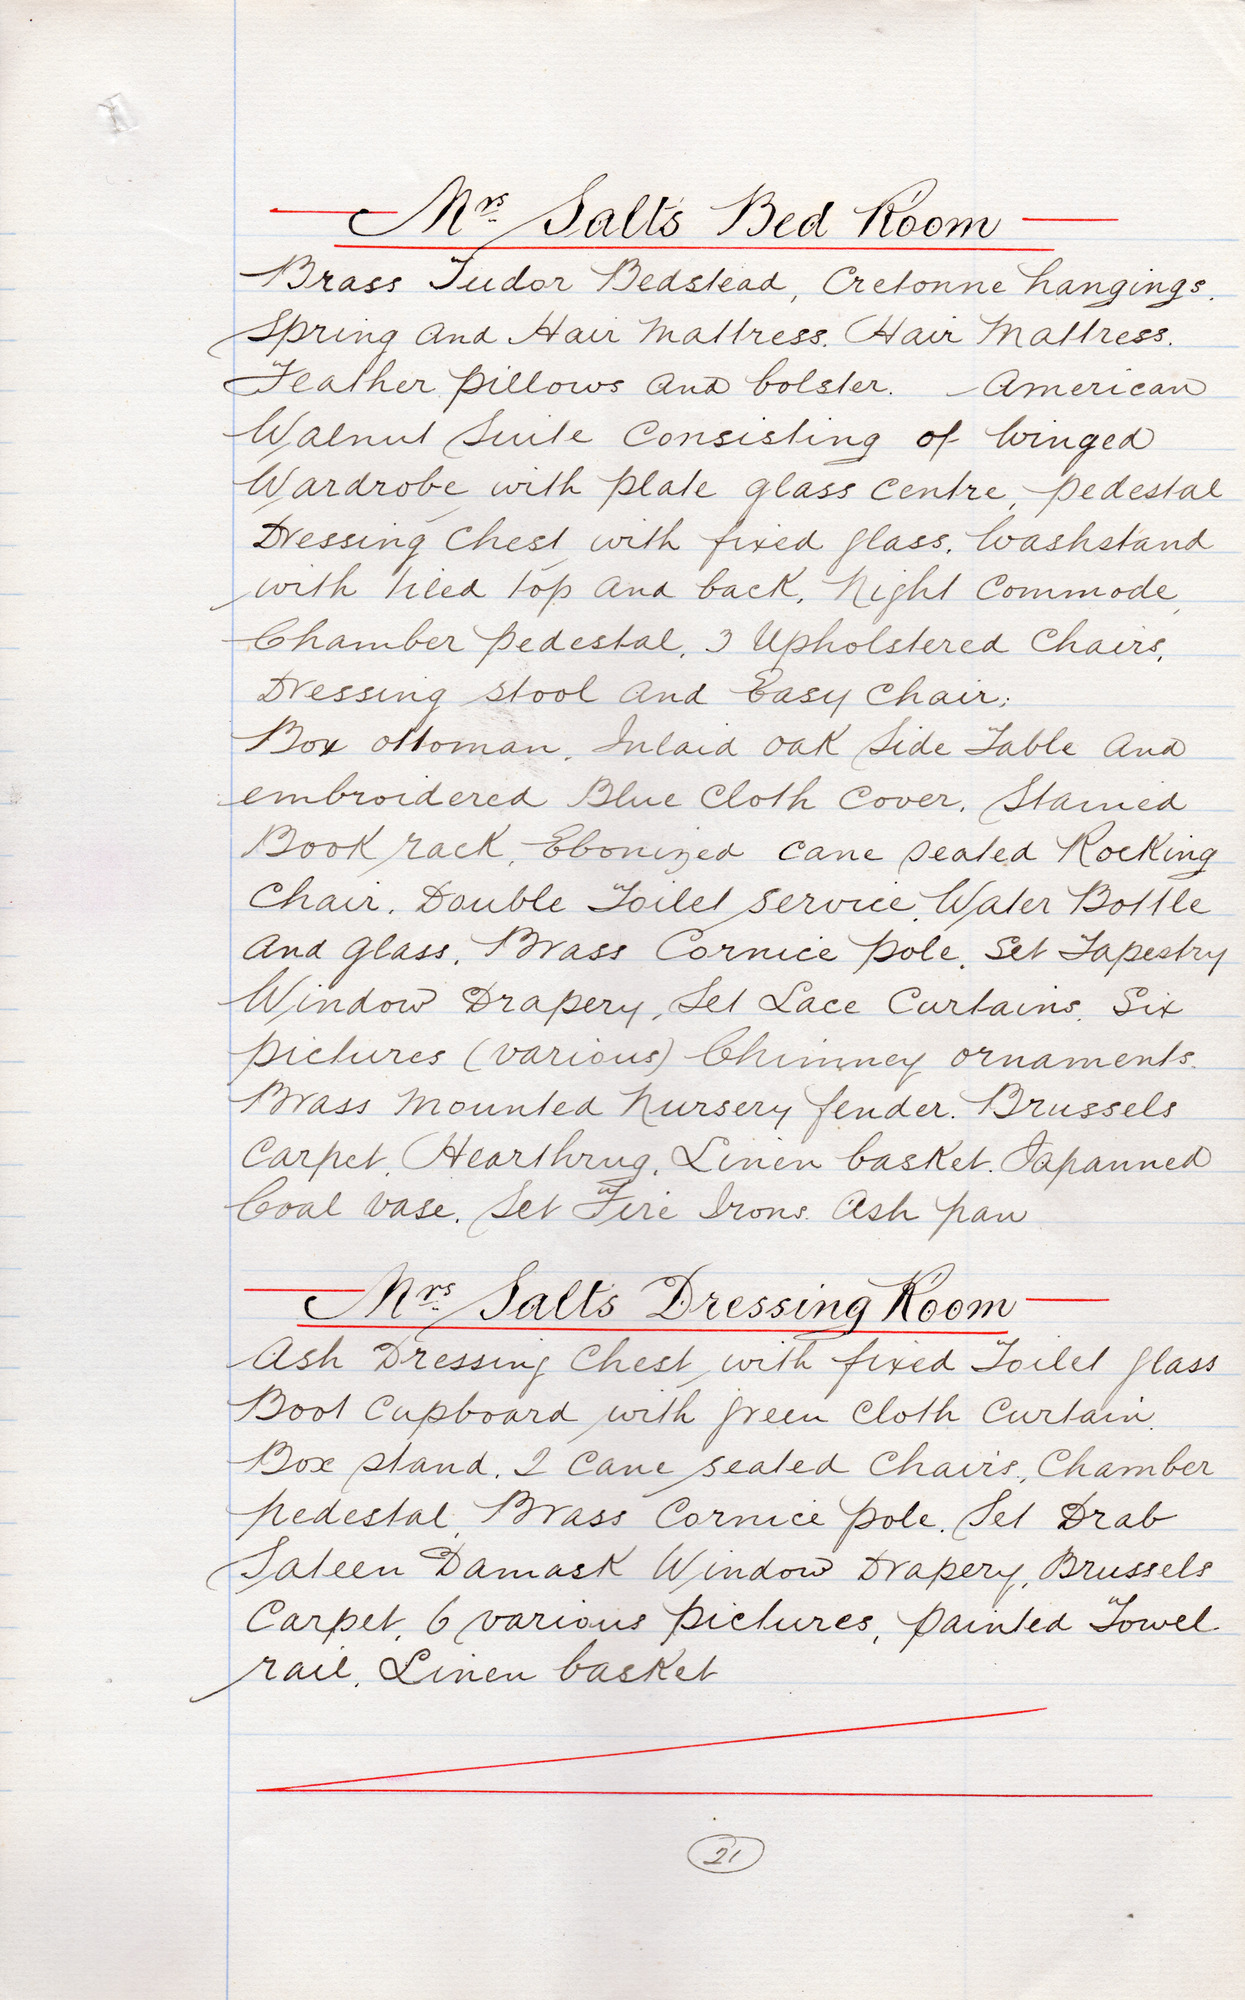 Mrs Salts Bed Room
Brass Tudor Bedstead, Cretonne hangings.
Spring and Hair Mattress. Hair Mattress.
Feather pillows and bolster. American
Walnut Suite Consisting of Winged
Wardrobe with plate glass centre, pedestal
Dressing Chest with fixed glass. Washstand
with tiled top and back. Night Commode,
Chamber pedestal. 3 Upholstered Chairs,
Dressing stool and Easy Chair;
Box ottoman. Inlaid oak Side Table and
embroidered Blue Cloth Cover. Stained
Book rack, Ebonized cane seated Rocking
Chair. Double Toilet service, Water Bottle
and glass. Brass Cornice pole. Set Tapestry
Window Drapery, Set Lace Curtains. Six
pictures (various) Chimney ornaments.
Brass Mounted Nursery fender. Brussels
Carpet, Hearthrug. Linen basket. Japanned
Coal vase. Set Fire Irons. Ash pan
Mrs Salts Dressing Room
Ash Dressing Chest with fixed Toilet glass
Boot Cupboard with green Cloth Curtain.
Box stand. 2 Cane seated Chairs, Chamber
pedestal, Brass Cornice pole. Set Drab
Sateen Damask Window Drapery, Brussels
Carpet, 6 various pictures, painted Towel
rail. Linen basket
21